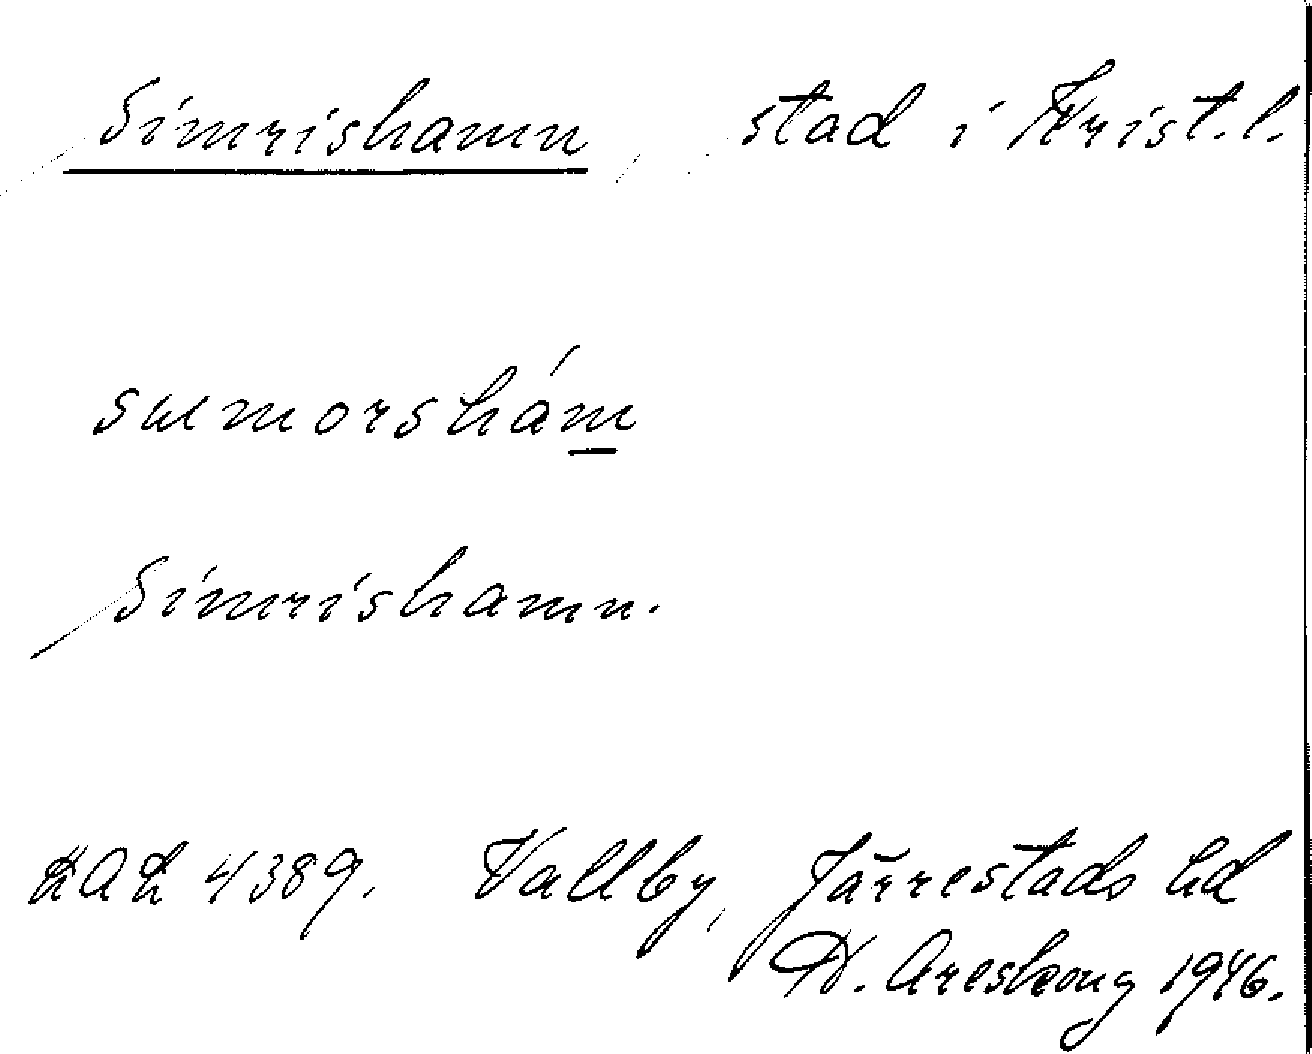 Simrishamn, stad i Krist.l.
sumorshám
Simrishamn.
4389. Vallby, Järrestads hd
1946.